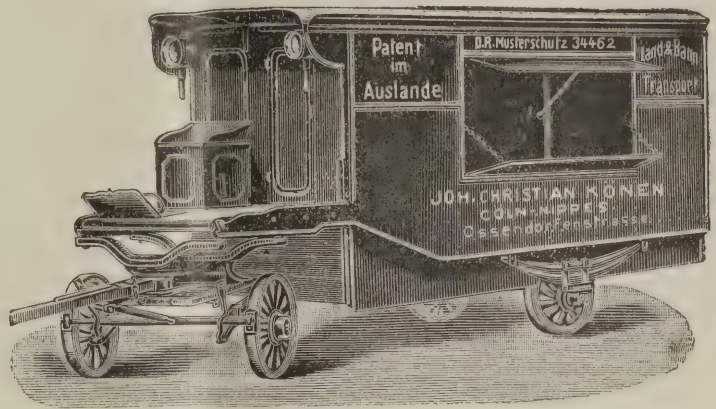 Patent
im
Auslande
D.R. Musterschutz 34462
Land & Bahn
Transport
JOH. CHRISTIAN KÖNEN
CÖLN-NIPPES
Ossendorferstrasse